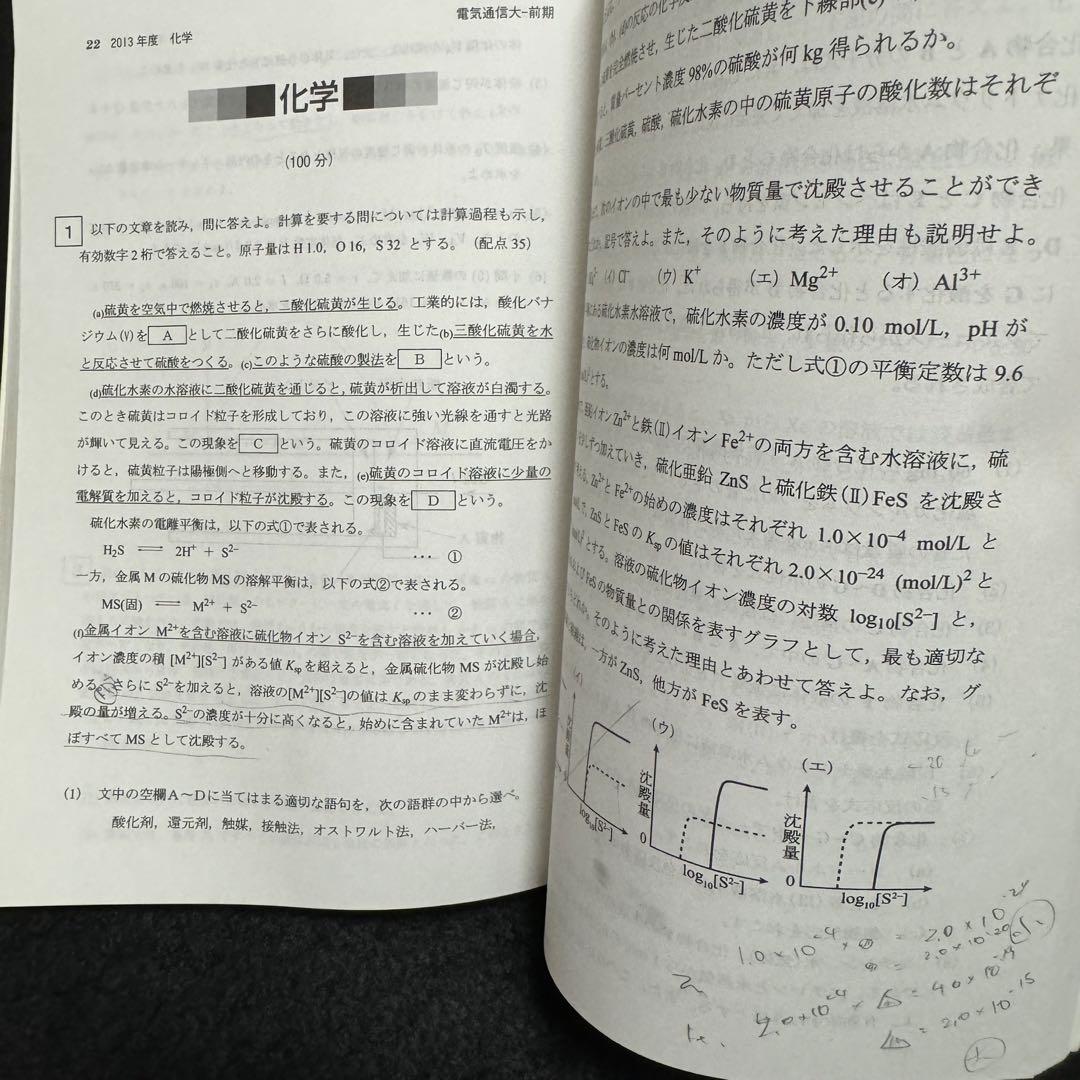 電気通信大-前期
22 2013年度 化学
化学
(100分)
1 以下の文章を読み，問に答えよ。計算を要する問については計算過程も示し，
有効数字2桁で答えること。原子量はH 1.0，O 16，S 32 とする。（配点 35）
(a)硫黄を空気中で燃焼させると，二酸化硫黄が生じる。工業的には，酸化バナ
ジウム(V)を A として二酸化硫黄をさらに酸化し，生じた(b)三酸化硫黄を水
と反応させて硫酸をつくる。(c)このような硫酸の製法を B という。
(d)硫化水素の水溶液に二酸化硫黄を通じると，硫黄が析出して溶液が白濁する。
このとき硫黄はコロイド粒子を形成しており，この溶液に強い光線を通すと光路
が輝いて見える。この現象を C という。硫黄のコロイド溶液に直流電圧をか
けると，硫黄粒子は陽極側へと移動する。また，(e)硫黄のコロイド溶液に少量の
電解質を加えると，コロイド粒子が沈殿する。この現象を D という。
硫化水素の電離平衡は，以下の式①で表される。
H₂S ⇌ 2H⁺ + S²⁻ … ①
一方，金属 M の硫化物 MS の溶解平衡は，以下の式②で表される。
MS(固) ⇌ M²⁺ + S²⁻ … ②
(f)金属イオン M²⁺を含む溶液に硫化物イオン S²⁻を含む溶液を加えていく場合，
イオン濃度の積 [M²⁺][S²⁻]がある値 Ksp を超えると，金属硫化物 MS が沈殿し始
める。さらに S²⁻を加えると，溶液の[M²⁺][S²⁻]の値は Ksp のまま変わらずに，沈
殿の量が増える。S²⁻の濃度が十分に高くなると，始めに含まれていた M²⁺は，ほ
ぼすべて MS として沈殿する。
(1) 文中の空欄A～Dに当てはまる適切な語句を，次の語群の中から選べ。
酸化剤，還元剤，触媒，接触法，オストワルト法，ハーバー法，
完全燃焼させ，生じた二酸化硫黄を下線部
質量パーセント濃度98%の硫酸が何 kg 得られるか。
三酸化硫黄，硫酸，硫化水素の中の硫黄原子の酸化数はそれぞ
イオンの中で最も少ない物質量で沈殿させることができ
記号で答えよ。また，そのように考えた理由も説明せよ。
(イ) Cl⁻ (ウ) K⁺ (エ) Mg²⁺ (オ) Al³⁺
硫化水素水溶液で，硫化水素の濃度が 0.10 mol/L，pH が
イオンの濃度は何 mol/L か。ただし式①の平衡定数は 9.6
とする。
亜鉛イオン Zn²⁺と鉄(II)イオン Fe²⁺の両方を含む水溶液に，硫
ずつ加えていき，硫化亜鉛 ZnS と硫化鉄(II)FeS を沈殿さ
Zn²⁺と Fe²⁺の始めの濃度はそれぞれ 1.0×10⁻⁴ mol/L と
ZnS と FeS の Ksp の値はそれぞれ 2.0×10⁻²⁴ (mol/L)² と
とする。溶液の硫化物イオン濃度の対数 log₁₀[S²⁻] と，
FeSの物質量との関係を表すグラフとして，最も適切な
そのように考えた理由とあわせて答えよ。なお，グ
一方が ZnS，他方が FeS を表す。
log₁₀[S²⁻]
(ウ)
沈殿量
0
log₁₀[S²⁻]
(エ)
沈殿量
0
log₁₀[S²⁻]